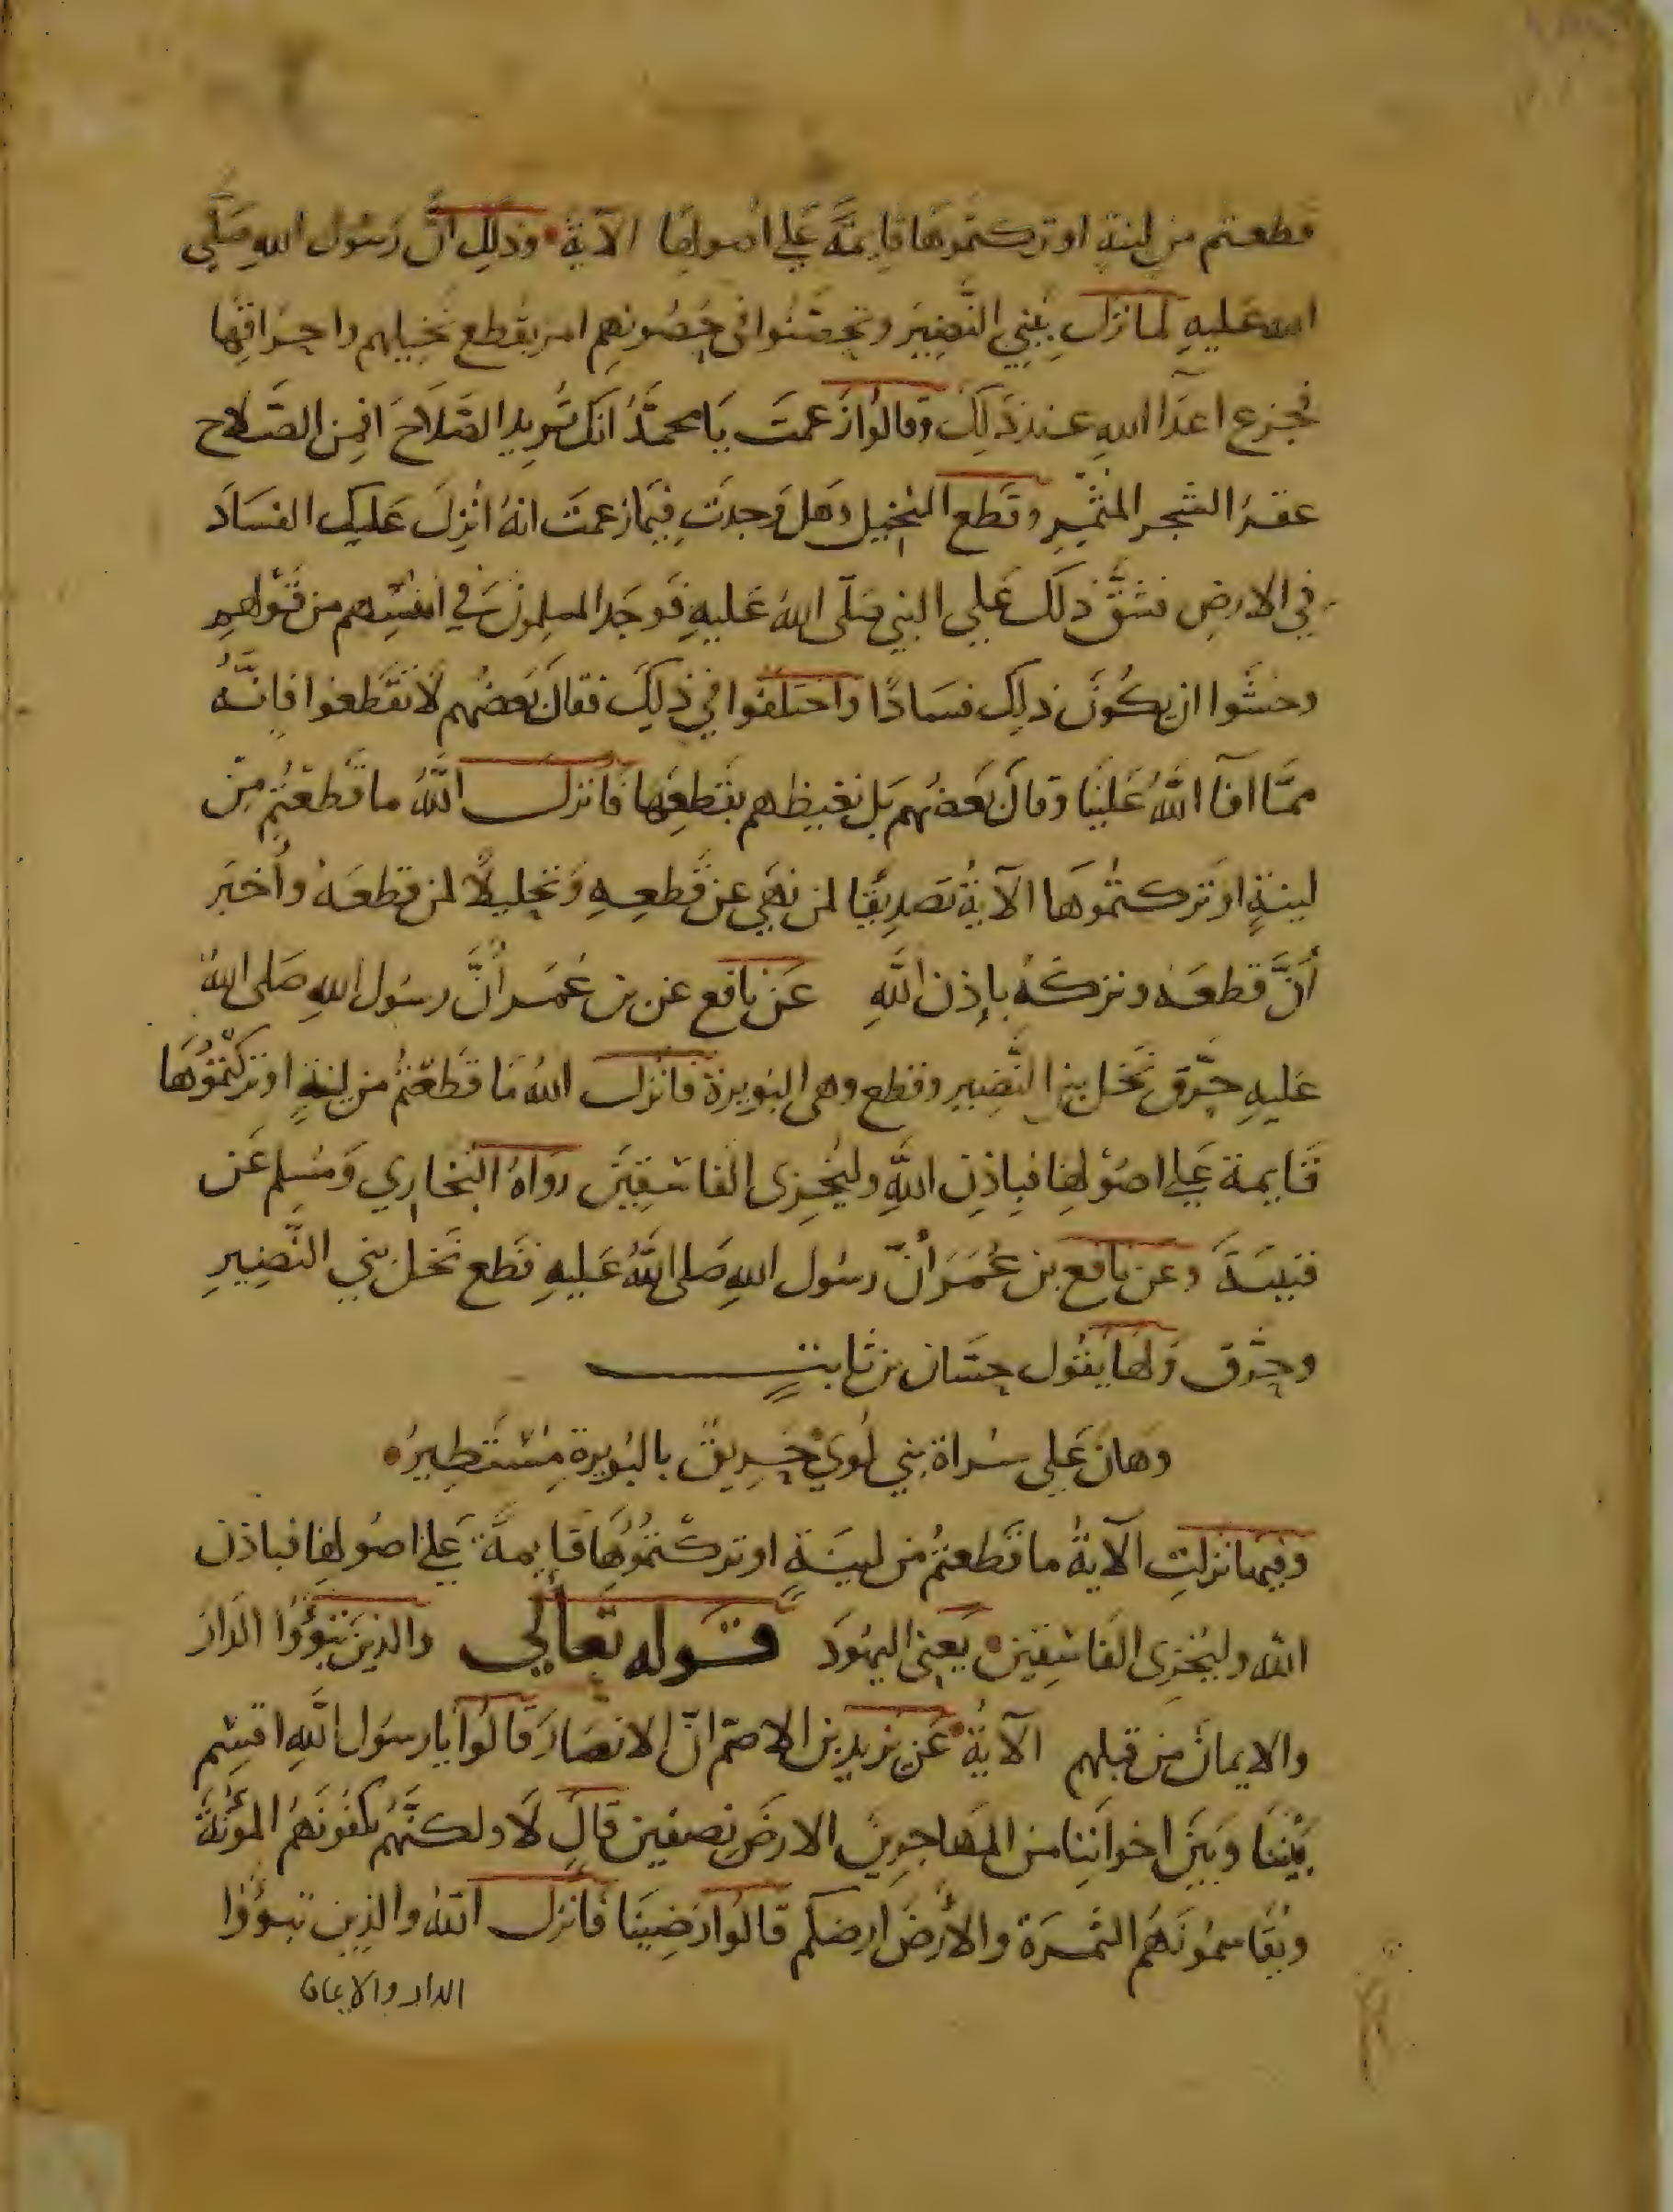 قطعتم من لينة او تركتموها قايمَّة عَلي اصولها الآيةُ وذلِكَ انَّ رَسُول اللهِ صَلَّي
الله عَليهِ لما نزلَ بِبَنِي النَّضِيَر وتحصَّنُوا في حصُونهِم امر بقطع نخيلهم واحراقِها
فجزع اعدَا اللهِ عند ذَلِكَ وقالوُا زَعمتَ يَا محمَّدُ انكَ تُريد الصَّلاَحَ افمِن الصَّلاح
عقرُ الشَّجر المثمِر وقَطع النخيل وَهَل وَجدتَ فيَما زعمتَ انهُ انُزِلَ عَليك الفسَادَ
في الارضِ فشقَّ ذلَكَ عَلي النبي صَلّى اللهُ عَليهِ فَوجَد المسلِمونَ في انفسِهم من قَوْلهِم
وخشَوا ان يكُونَ ذلِك فسَادًا واختلَفوا في ذلِكَ فقالَ بَعضُهم لاَ تَقطَعوا فاِنَّهُ
ممَّا افآ اللَّهُ عَلينَا وَقالَ بَعضُهم بَل نغيظهم بقَطعِهَا فانزل اللَّهُ ما قطعْتُم مِنْ
لينةٍ اوَ تركتُموُهَا الآيةُ تَصديقًا لمن نَهَي عن قَطعِهِ وَتحليلاً لمن قطعَهُ وأخبَر
أنَّ قطعَهُ وتركَهُ بإذن اللَّهِ عَن نافع عن بن عُمَر أنَّ رسُول اللهِ صَلى اللهُ
عَليهِ حرّق نَخل بني النَّضِيرِ وقطع وهي البُويرة فانزل اللهُ مَا قَطَعْتمُ من لينةٍ اوتركْتموُهَا
قَايمة عَلي اصوُلها فبِاذِن اللَّهِ وليُخزِى الفاسقِينَ روَاهُ البُخاري وَمُسلِم عَن
قتيبَةَ وعن نافع بن عُمَرَ أنّ رسُول اللهِ صَلى اللَّهُ عَليهِ قَطع نَخلَ بني النَّضِيرِ
وحرَّق وَلهَا يقُول حسَّان بن ثابتٍ
وَهانَ عَلي سَراة بني لُوي حَرِيقٌ بالبُويرة مُسْتَطِيرُ
وفيها نزلتِ الآيةُ ما قَطعتمُ من لينَةٍ اوتركْتُموُهَا قَايمةً عَلى اصوُلِها فباذن
الله وليُخزِى الفَاسِقينَ يَعني اليهُودَ قَوله تَعالي والذينَ تبَوؤُا الدَارَ
والايمانَ من قبلهم الآيةُ عَن يزيد بن الاصمّ انّ الانصَارَ قَالوُا يا رسوُل اللَّهِ اقسِم
بَيْننَا وَبَينَ اخواننِا من المهاجِرينَ الارضَ نصفين قالَ لاَ ولكنَّهُم يكفوُنَهُم المؤنَةَ
ويُقَاسِموُنَهُم الثمَرَة والأرضَ ارضكم قَالوُا رَضِينَا فانزل الله والذين تبوؤُا
الدار والايمان